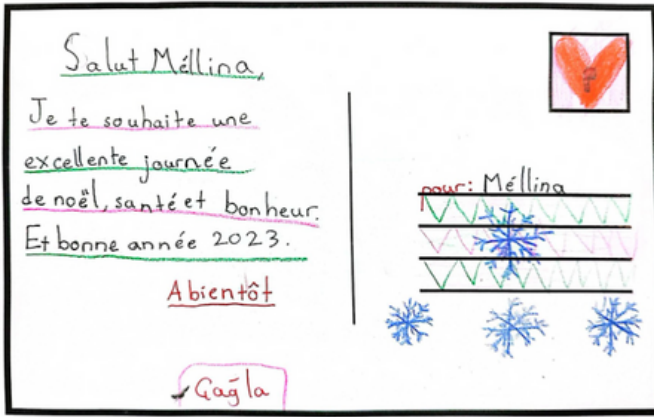 Salut Méllina,
Je te souhaite une
excellente journée
de noël, santé et bonheur.
Et bonne année 2023.
A bientôt
Çağla
pour: Méllina